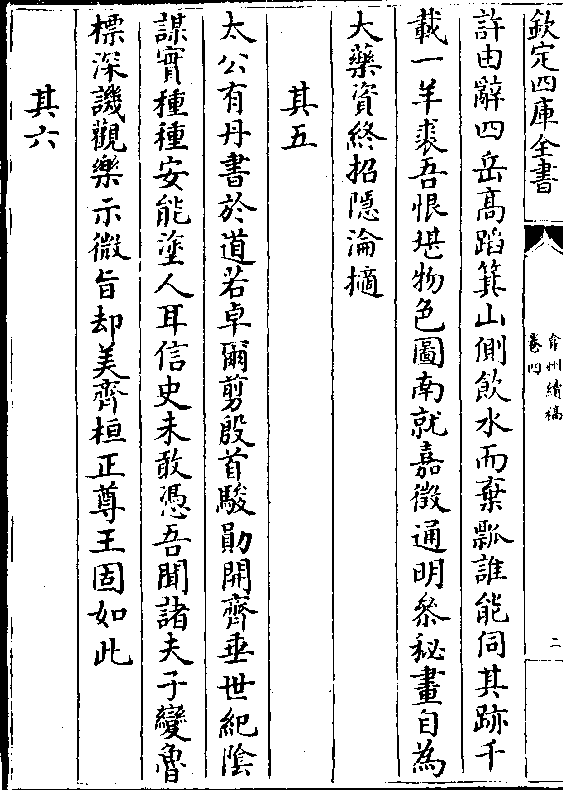 欽定四庫全書
弇州續稿
卷四
二
許由辭四岳髙蹈箕山側飲水而棄瓢誰能伺其跡千
載一羊裘吾恨堪物色圖南就嘉徵通明叅秘畫自為
大藥資終招隱淪擿
其五
太公有丹書於道若卓爾剪殷首駿勛開齊垂世紀陰
謀實種種安能塗人耳信史未敢憑吾聞諸夫子變魯
標深譏觀樂示微旨却美齊桓正尊王固如此
其六